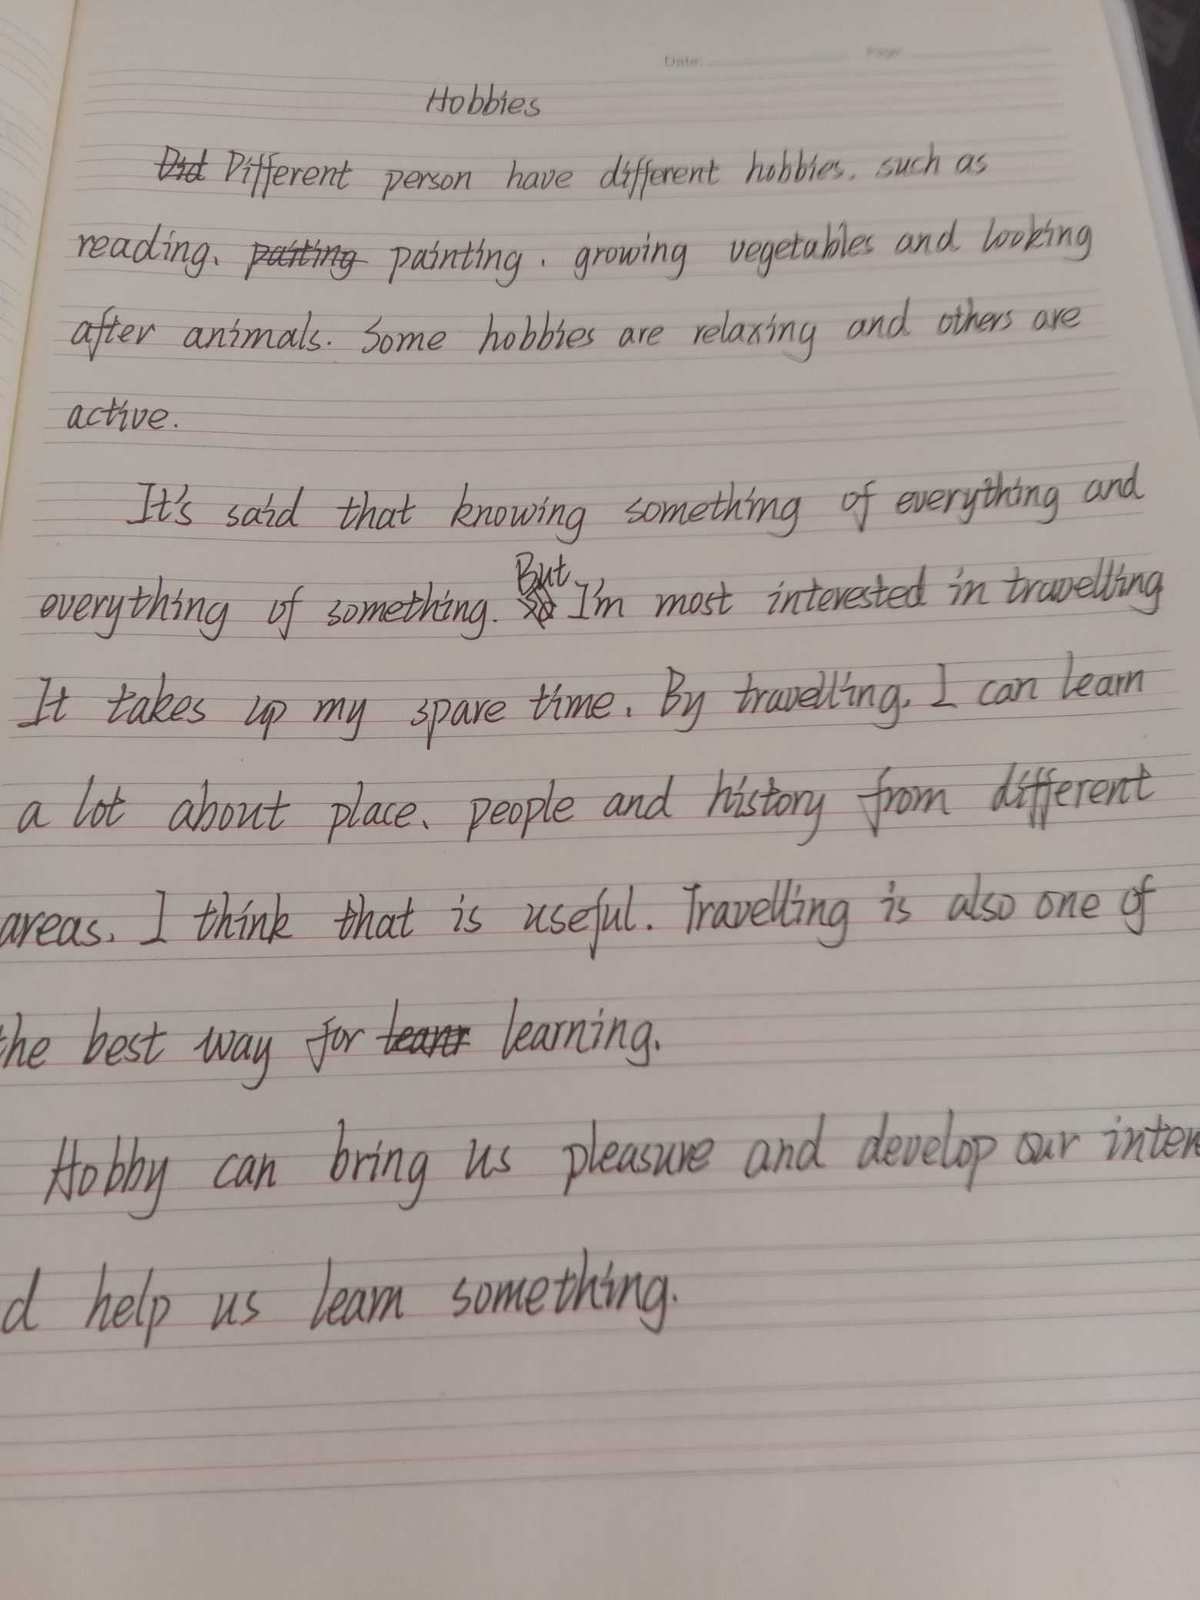 Date: Page:
Hobbies
Did Different person have different hobbies. such as
reading、 paiting painting . growing vegetables and looking
after animals. Some hobbies are relaxing and others are
active.
It's said that knowing something of everything and
everything of something. But I'm most interested in travelling
It takes up my spare time. By travelling. I can learn
a lot about place、 people and history from different
areas. I think that is useful. Travelling is also one of
the best way for leanr learning.
Hobby can bring us pleasure and develop our inter
d help us learn something.